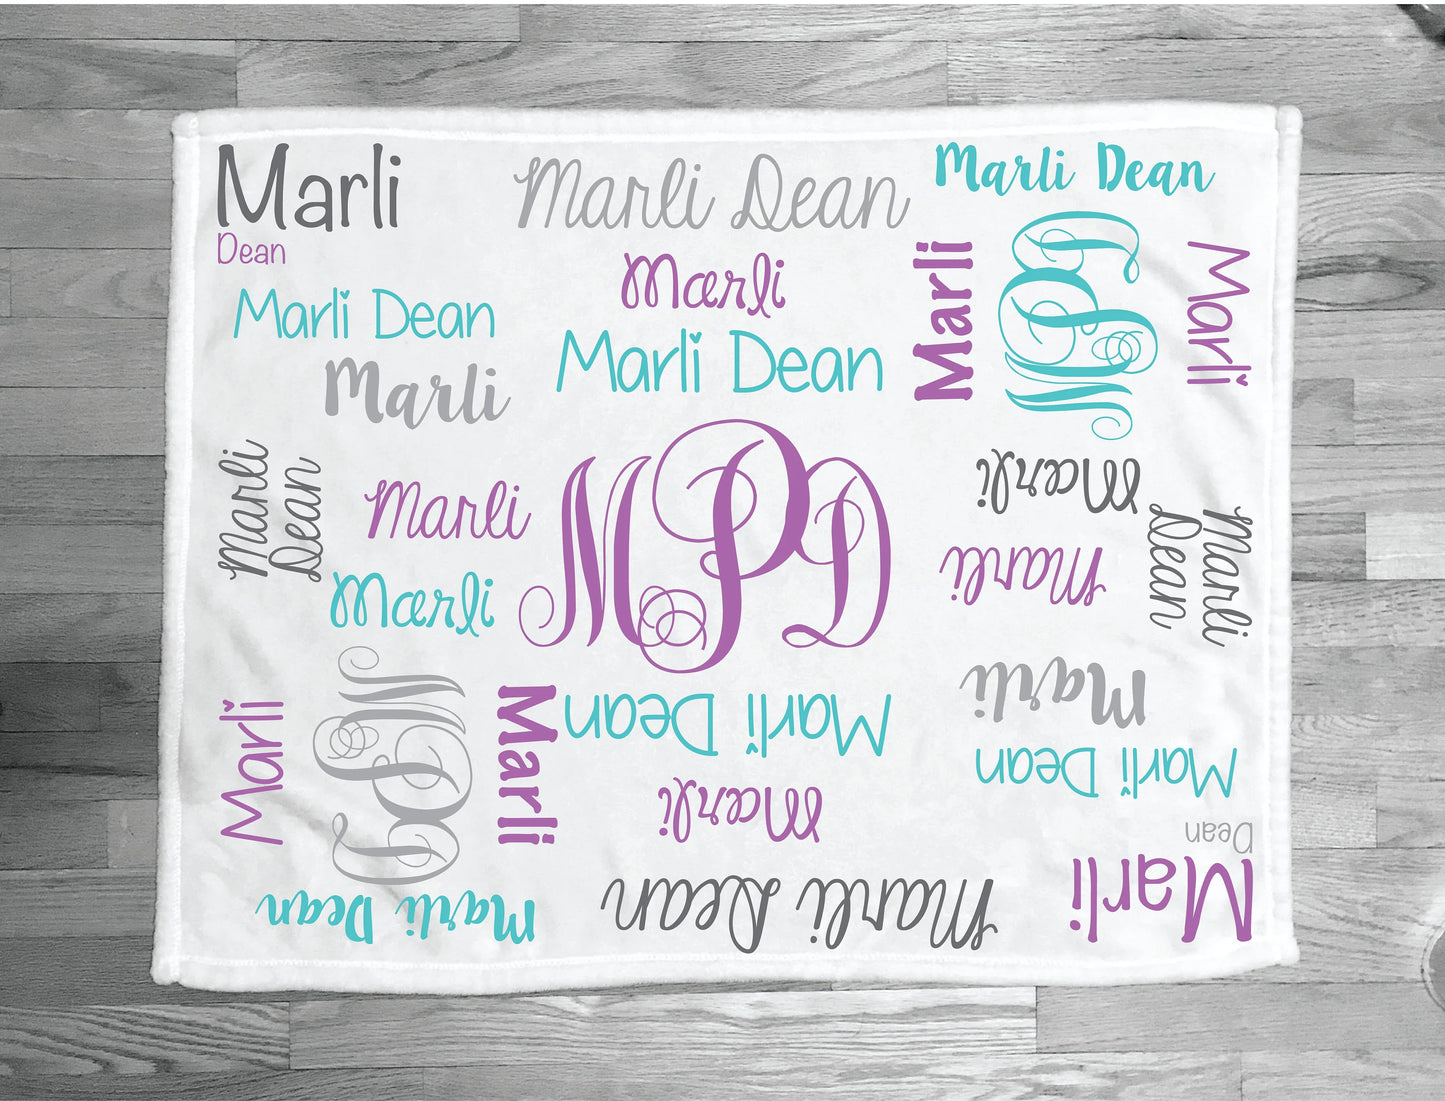 Marli
Dean
Marli Dean
Marli Dean
Marli Dean
Marli
Marli Dean
Marli
Marli
MPD
Marli
Marli
Dean
Marli
Marli
MPD
Marli
Marli
Marli
Dean
Marli
MPD
Marli
Marli Dean
Marli
Marli
Marli Dean
Marli Dean
Marli Dean
Marli
Dean